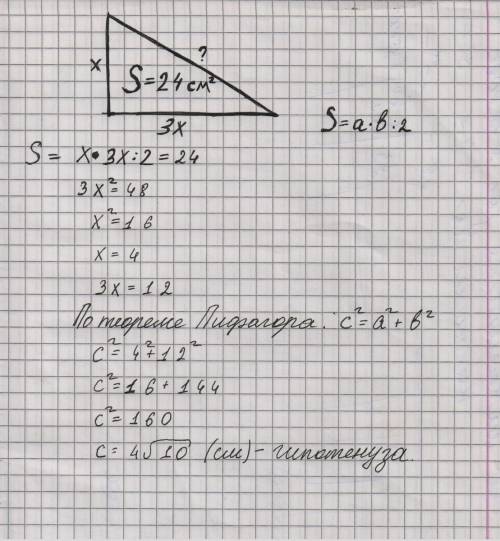 ?
x
S=24 см²
3x
S=a·в:2
S= x·3x:2=24
3x²=48
x²=16
x=4
3x=12
По теореме Пифагора: c²=a²+в²
c²=4²+12²
c²=16+144
c²=160
c=4√10 (см)-гипотенуза.